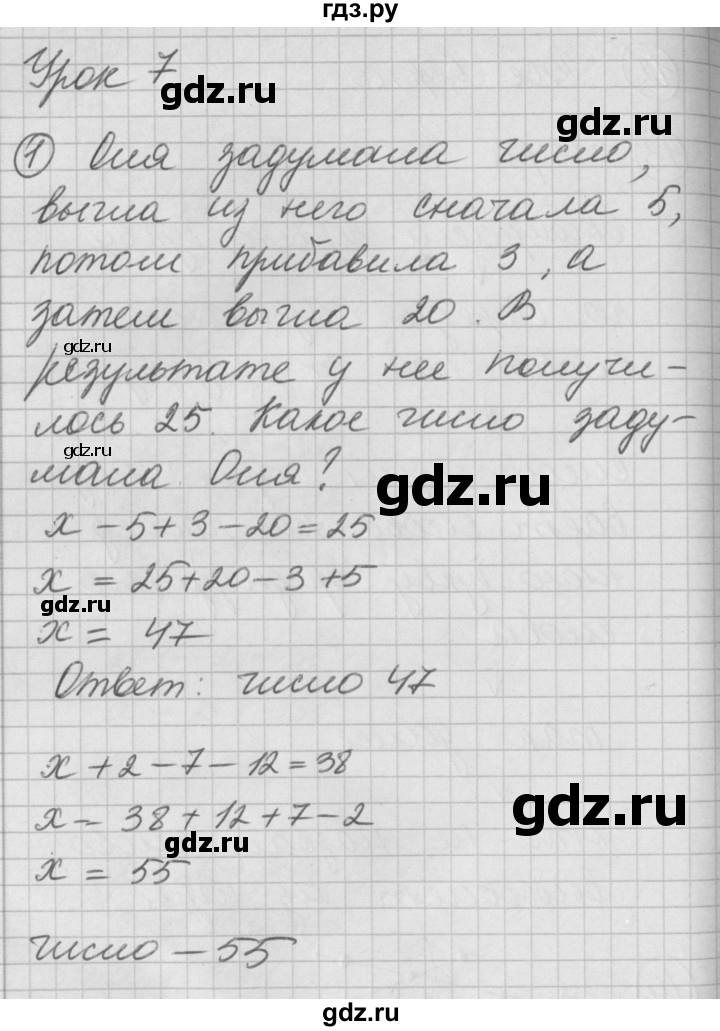 гдз.ру
Урок 7
gdz.ru
gdz.ru
① Оля задумала число,
вычла из него сначала 5,
потом прибавила 3, а
затем вычла 20. В
gdz.ru
результате у нее получи-
лось 25. Какое число заду-
gdz.ru
мала Оля?
gdz.ru
x - 5 + 3 - 20 = 25
x = 25 + 20 - 3 + 5
gdz.ru
x = 47
Ответ: число 47
x + 2 - 7 - 12 = 38
gdz.ru
x = 38 + 12 + 7 - 2
gdz.ru
x = 55
число - 55
gdz.ru